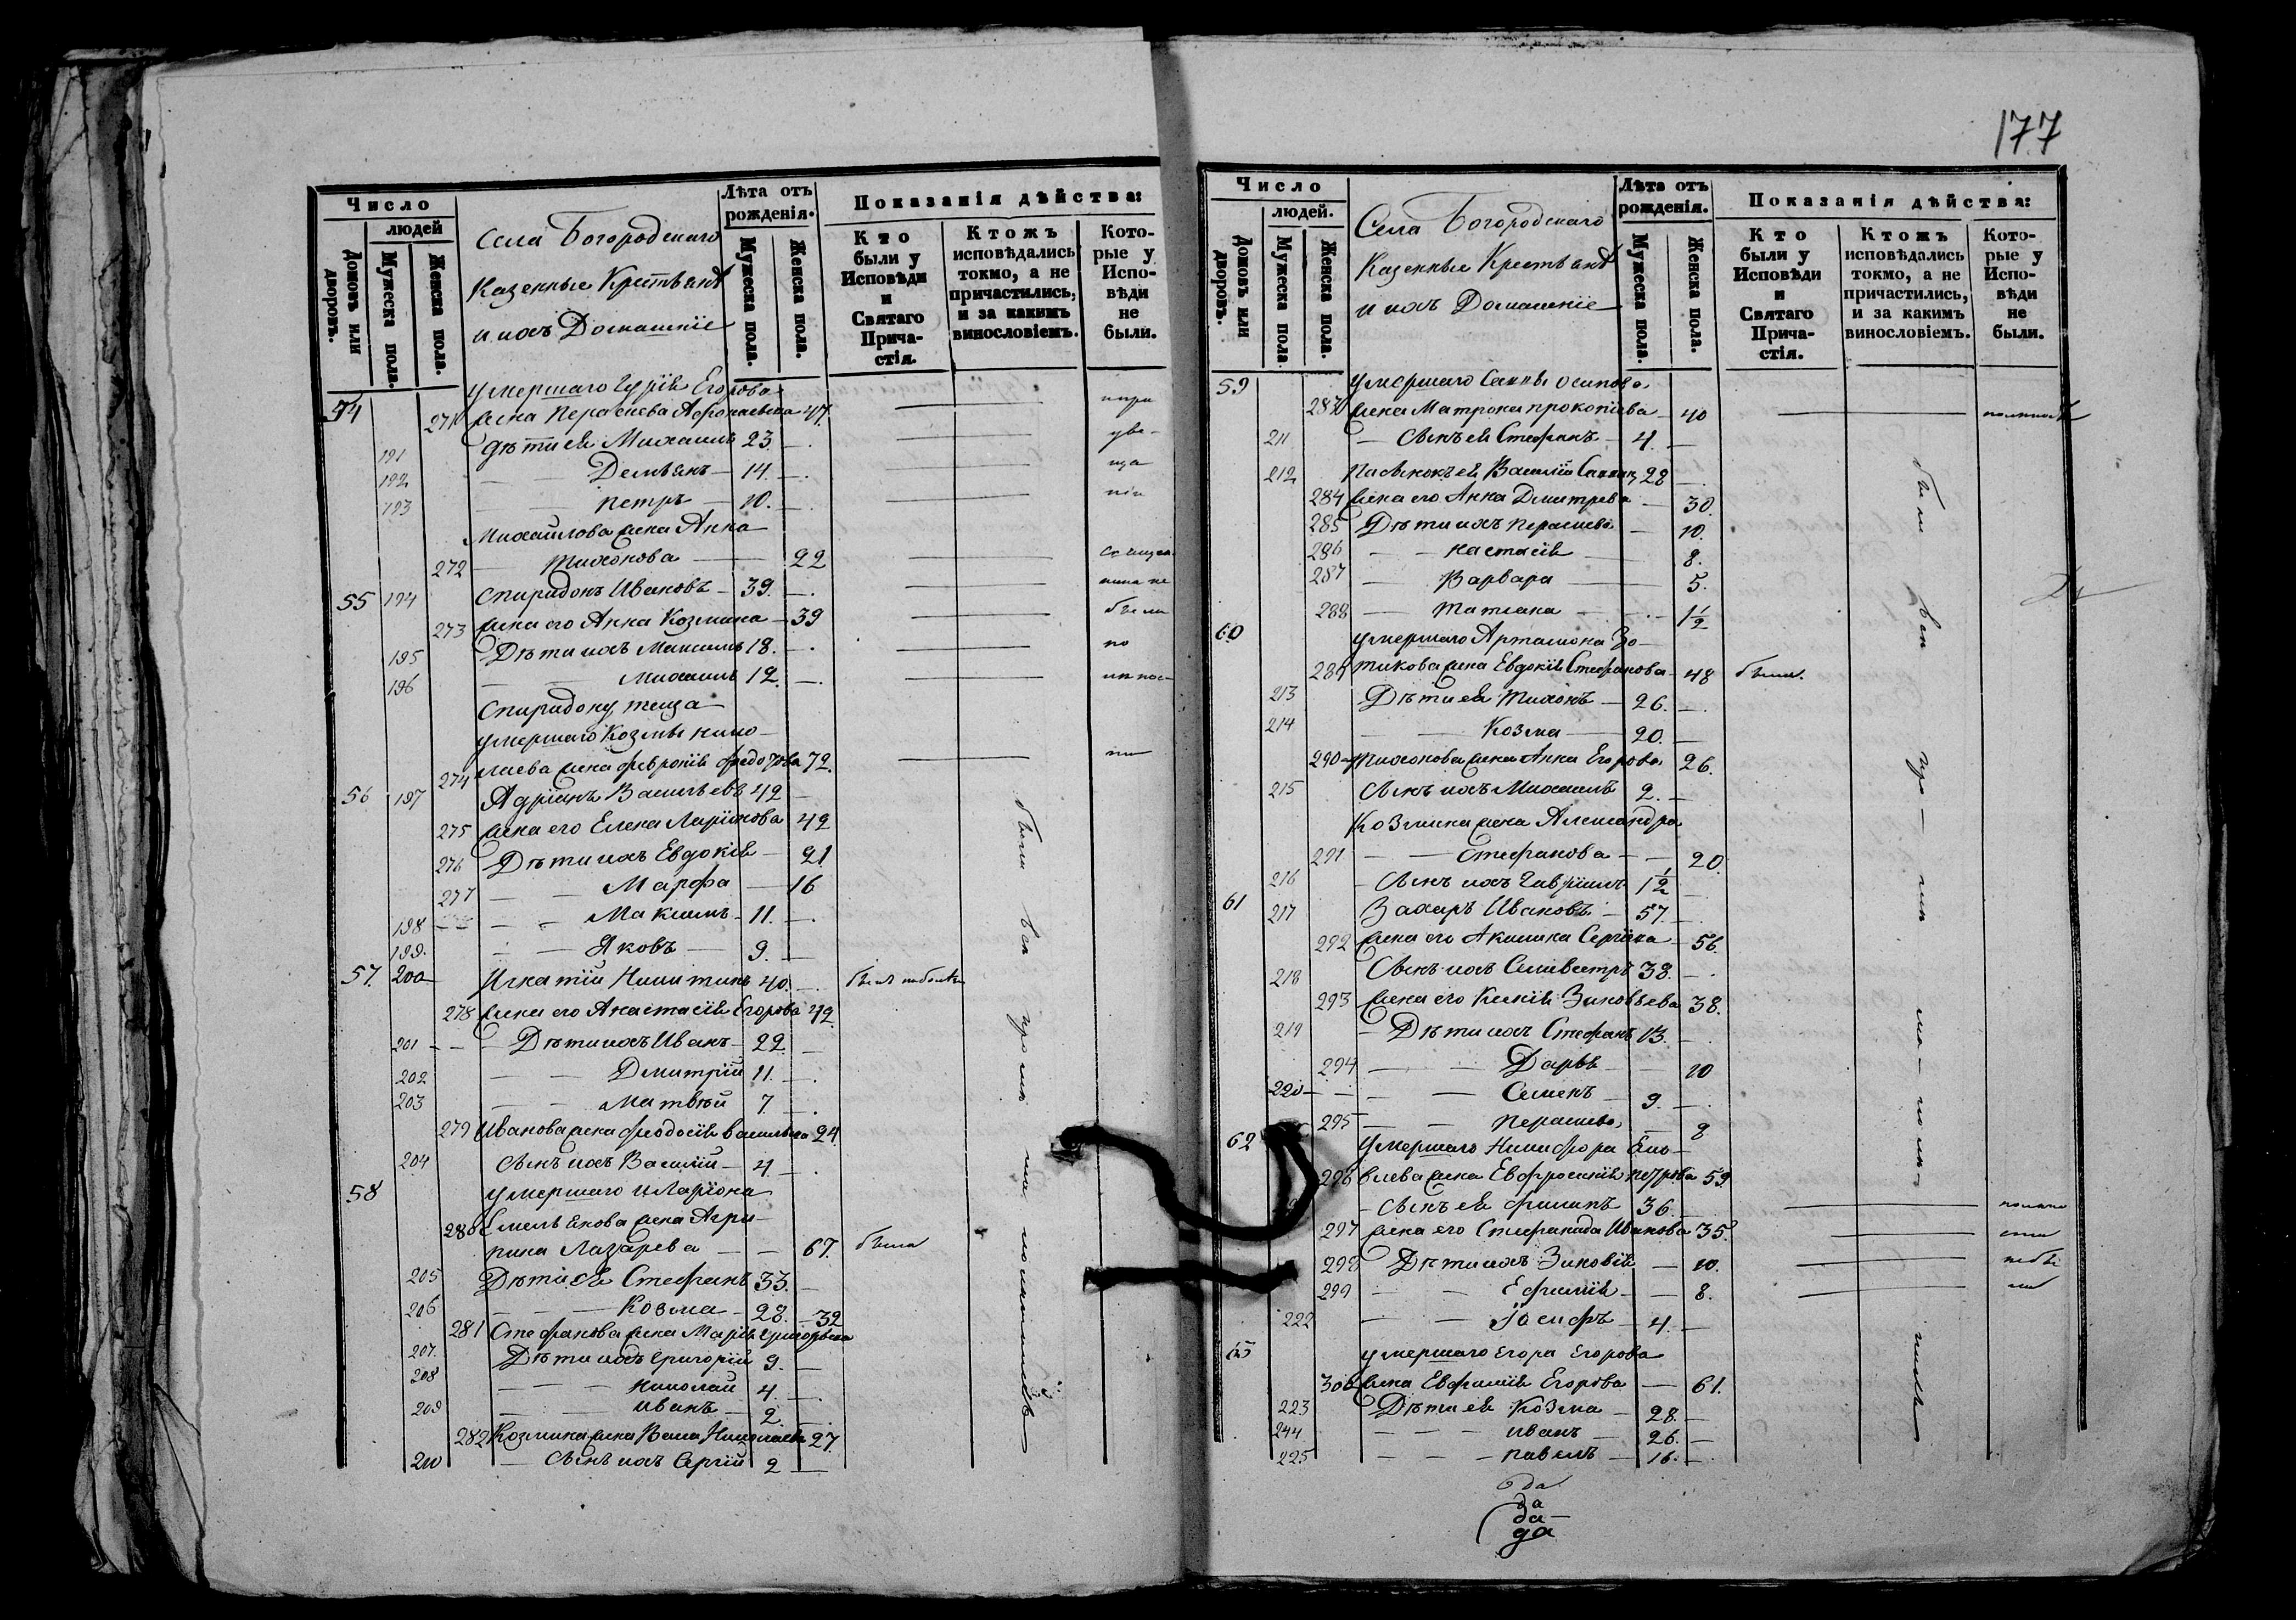 177
Число
людей
Домовъ или дворовъ.
Мужеска пола.
Женска пола.
Села Богородскаго
Казенные Крестьянѣ
и ихъ Домашніе
Лѣта отъ рожденія.
Мужеска пола.
Женска пола.
Показанія дѣйства:
Кто были у Исповѣди и Святаго Прича-стія.
Ктожъ исповѣдались токмо, а не причастились, и за какимъ винословіемъ.
Кото-рые у Испо-вѣди не были.
умершаго Гурія Егорова
54 271 жена Параскева Афонасьева 47.
191 дѣти ея Михаилъ 23.
192 Демьянъ 14.
193 петръ 10.
Михайлова жена Анна
272 Тихонова 22
55 194 Спиридонъ Ивановъ 39.
273 жена его Анна Козмина 39
195 Дѣти ихъ Максимъ 18.
196 Михаилъ 12.
Спиридону теща
умершаго Козмы нико-
274 лаева жена февронія федотова 72.
56 197 Адріанъ Васильевъ 42
275 жена его Елена Ларіонова 42
276 Дѣти ихъ Евдокія 21
277 Марфа 16
198 Максимъ 11.
199. Яковъ 9.
57. 200 Игнатій Никитинъ 40. былъ
278 жена его Анастасія Егорова 42.
201 Дѣти ихъ Иванъ 22.
202 Дмитрій 11.
203 Матвѣй 7
279 Иванова жена феодосія васильева 24.
204 Сынъ ихъ Василій 4
58 умершаго иларіона
280 Емельянова жена Агри-
пина Лазарева 67. была
205 Дѣти ея Стефанъ 33.
206 Козма 28. 32
281 Стефанова жена Марія григорьева
207. Дѣти ихъ григорій 9.
208 николай 4.
209 иванъ 2.
282 Козмина жена Васса Николаева 27.
210 Сынъ ихъ Сергій 2
были
Число
людей.
Домовъ или дворовъ.
Мужеска пола
Женска пола.
Села Богородскаго
Казенные Крестьянѣ
и ихъ Домашніе
Лѣта отъ рожденія.
Мужеска пола.
Женска пола.
Показанія дѣйства:
Кто были у Исповѣди и Святаго Прича-стія.
Ктожъ исповѣдались токмо, а не причастились, и за какимъ винословіемъ.
Кото-рые у Испо-вѣди не были.
59 умершаго Саввы осипова
283 жена Матрона прокопіева 40
211 Сынъ ея Стефанъ 4.
212 Пасынокъ ея Василій Саввин 28
284 жена его Анна Дмитрева 30.
285 Дѣти ихъ параскева 10.
286 настасія 8.
287 Варвара 5.
288 татіана 1½
60 умершаго Артамона Зо-
289 тикова жена Евдокія Стефанова 48 была.
213 Дѣти ея Тихонъ 26.
214 Козма 20.
290 Тихонова жена Анна Егорова 26.
215 Сынъ ихъ Михаилъ 2.
Козмина жена Александра
291 Стефанова 20.
216 Сынъ ихъ Гавріилъ 1½
61 217 Захаръ Ивановъ 57.
292 жена его Акилина Сергіева 56.
218 Сынъ ихъ Селивестръ 38.
293 жена его Ксенія Зиновьева 38.
219 Дѣти ихъ Стефанъ 13.
294 Дарья 10
220 Семенъ 9.
295 Параскева 8
62 Умершаго Никифора
296 жена Евфросинія петрова 59
Сынъ ея филипъ 36.
297 жена его Стефанида Иванова 35.
298 Дѣти ихъ Зиновія 10.
299 Ефимія 8.
222 Іосифъ 4.
63 умершаго Егора Егорова
300 жена Евфимія Егорова 61.
223 Дѣти ея Козма 28.
244 иванъ 26.
225 павелъ 16.
были
да
да
да